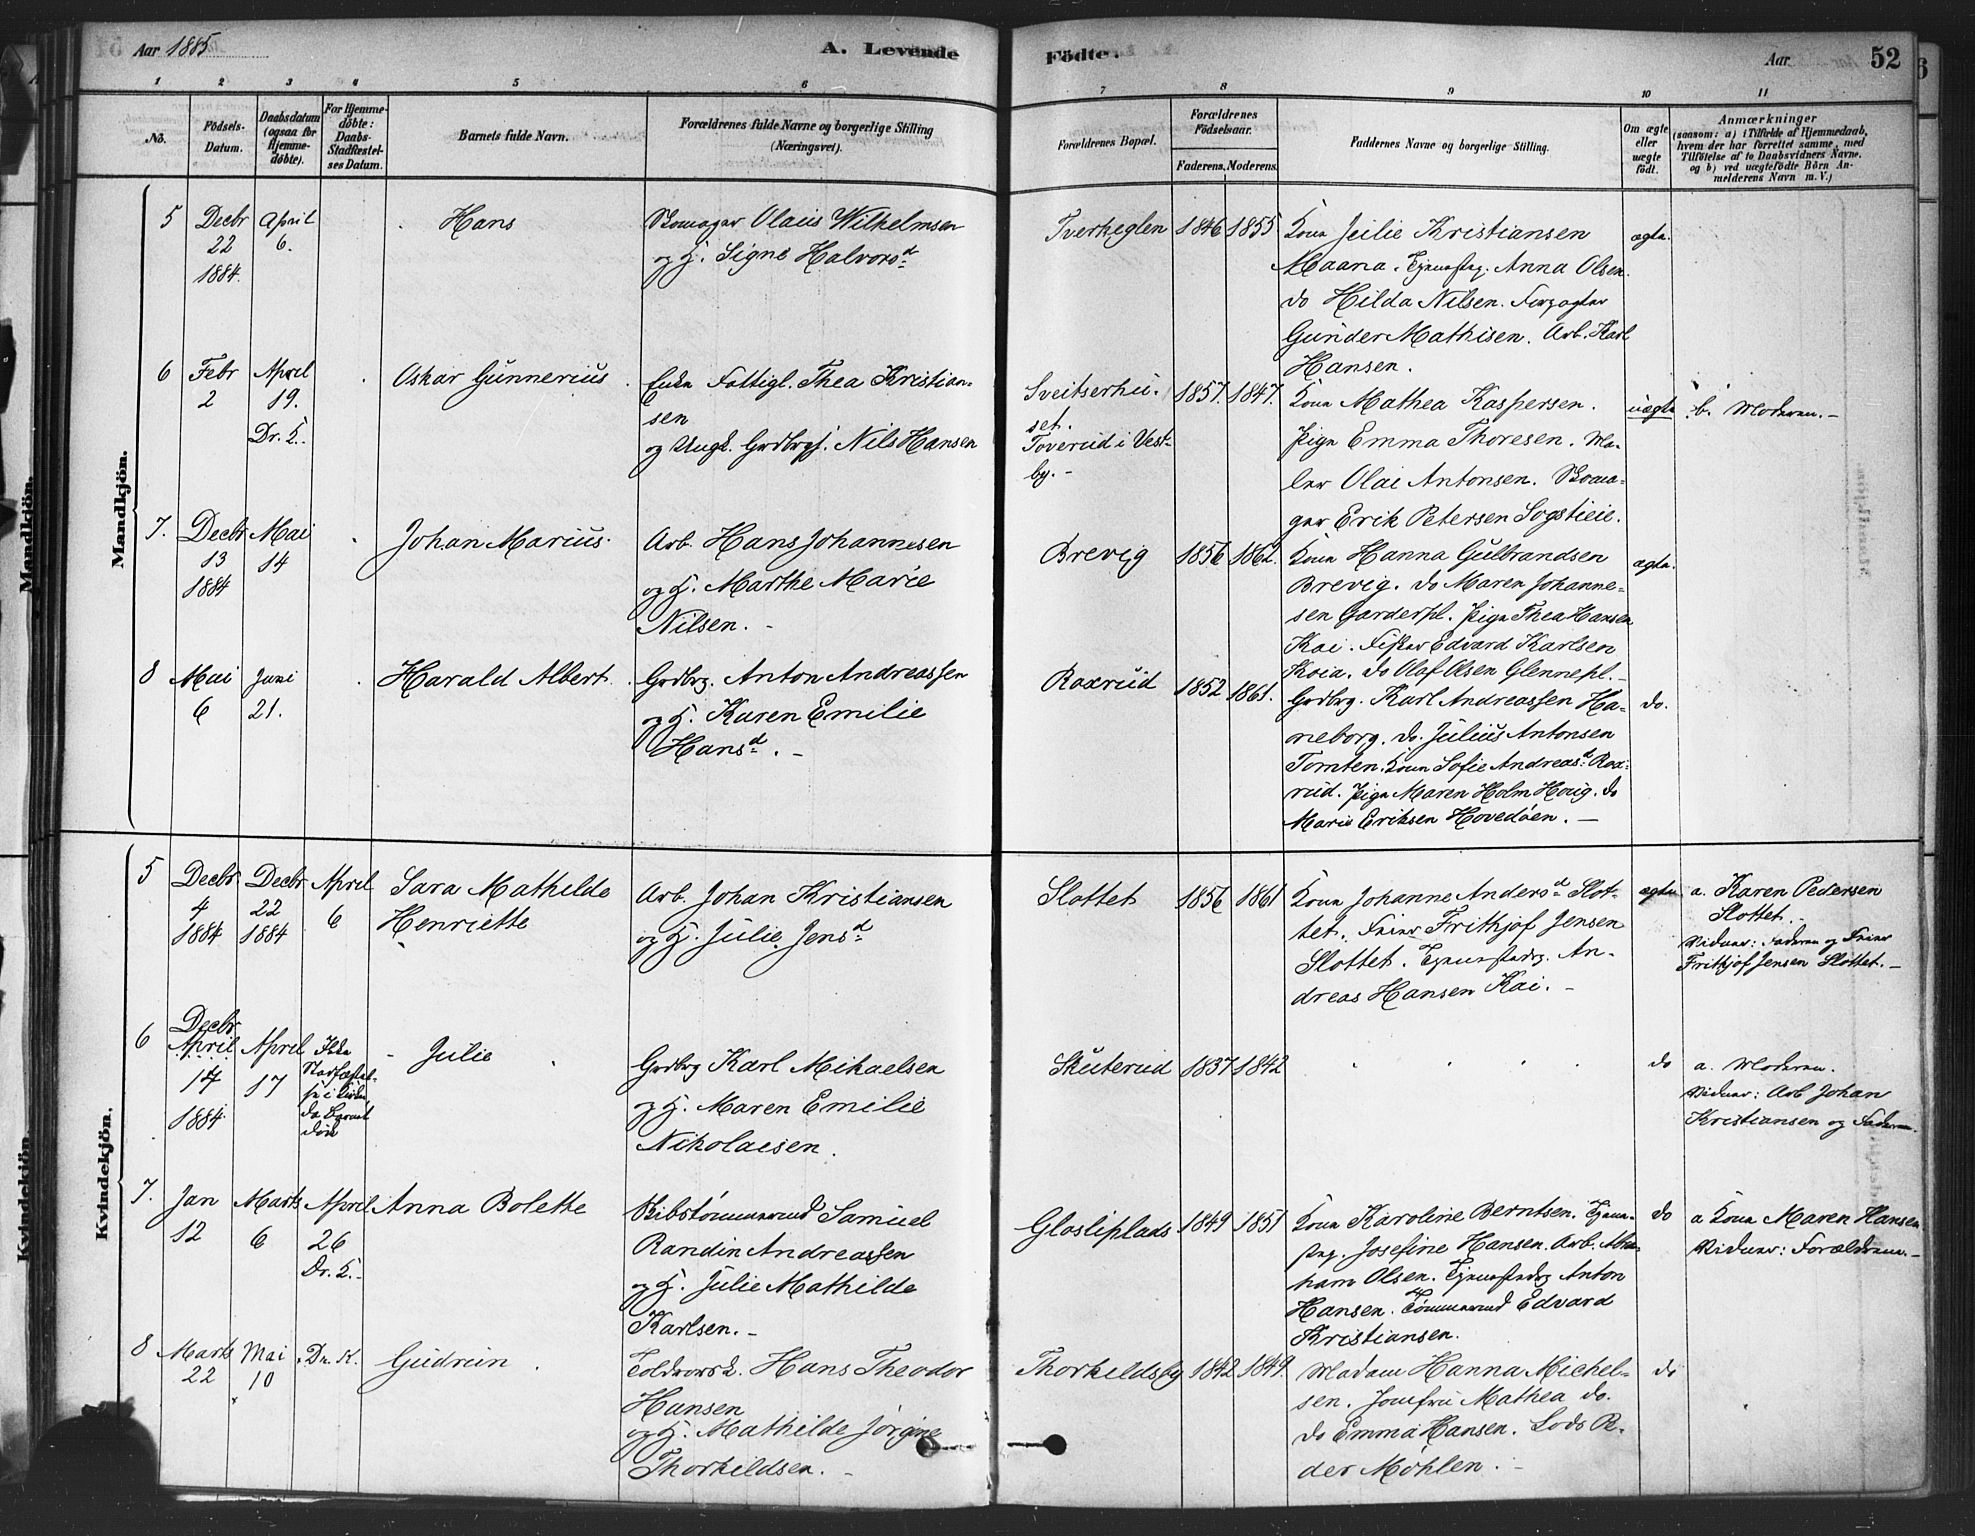 Aar 1885
A. Levende
Födte.
Aar
52
1 2 3 4 5 6 7 8 9 10 11
No.
Födsels-
Datum.
Daabsdatum
(ogsaa för
Hjemme-
döbte).
For Hjemme-
döbte:
Daabs-
Stadfæstel-
ses Datum.
Barnets fulde Navn.
Forældrenes fulde Navne og borgerlige Stilling
(Næringsvei).
Forældrenes Bopæl.
Forældrenes
Födselsaar.
Faderens. Moderens.
Faddernes Navne og borgerlige Stilling.
Om ægte
eller
uægte
födt.
Anmærkninger
(saasom: a) i Tilfælde af Hjemmedaab,
hvem der har forrettet samme, med
Tilföielse af to Daabsvidners Navne.
og b) ved uægtefödte Börn An-
melderens Navn m. V.)
Mandkjön.
5
Decbr
22
1884.
April
6.
Hans
Skomager Olaus Wilhelmsen
og H. Signe Halvorsd
Tverheglen
1846
1855
Kona Jeilie Kristiansen
Maana. Tjenestpg. Anna Olsen.
do Hilda Nilsen. Forpagter
Gunder Mathisen. Arb. Karl
Hansen.
ægte.
6
Febr
2
April
19.
Dr. K.
Oskar Gunnerius
Enke Fattigl. Thea Kristian-
sen
og Ungk. Grdbrgs. Nils Hansen
Sveitserhu-
set.
Toverud i Vest-
by.-
1857.
1847.
Kona Mathea Kaspersen.
Pige Emma Thoresen. Ma-
ler Olai Antonsen. Skoma-
ger Erik Petersen Sogstieie.
uægte
b. Moderen.-
7.
Decbr
13
1884
Mai
14
Johan Marius.
Arb. Hans Johannesen
og H. Marthe Marie
Nilsen.-
Brevig
1856
1862.
Kona Hanna Gulbrandsen
Brevig. do Maren Johanne-
sen Garderpl. Pige Thea Hansen
Kai. Fisker Edvard Karlsen
Koia. do Olaf Olsen Glennepl.-
ægte.
8
Mai
6
Juni
21.
Harald Albert.
Grdbrg. Anton Andreassen
og H. Karen Emilie
Hansd.-
Roxrud
1852
1861.
Grdbrg. Karl Andreassen Ha-
neborg. do. Julius Antonsen
Tomten. Kona Sofie Andreasd Rox-
rud. Pige Maren Holm Houg. do
Marie Eriksen Hovedöen.-
do.
Kvindekjön.
5
Decbr
4
1884
Decbr
22
1884
April
6
Sara Mathilde
Henriette
Arb. Johan Kristiansen
og H. Julie Jensd
Slottet
1856
1861
Kona Johanne Andersd Slot-
tet. Frier Frithjof Jensen
Slottet. Tjenestedrg. An-
dreas Hansen Kai.-
ægte
a. Karen Pedersen
Slottet.-
Vidner: Faderen og Frier
Frithjof Jensen Slottet.-
6
Decbr
April
14
1884.
April
17
Ikke
Stadfæstel-
se i Kirken
da Barnet
döde
Julie
Grdbrg Karl Mikaelsen
og H. Maren Emilie
Nikolaisen.
Skuterud
1837
1842
do
a. Moderen.
Vidner: Arb Johan
Kristiansen og Faderen.
7.
Jan
12
Marts
6
April
26
Dr. K.-
Anna Bolette
Skibstömmermd Samuel
Randin Andreassen
og H. Julie Mathilde
Karlsen.-
Glasliplads
1849
1851
Kona Karoline Berntsen. Tjene-
stpg. Josefine Hansen. Arb. Abra-
ham Olsen. Tjenestedrg Anton
Hansen. Tömmermd Edvard
Kristiansen.
do
a Kona Maren Hansen
Vidner: Forældrene.-
8
Marts
22
Mai
10
Dr. K.
Gudrun.
Toldvorsk. Hans Theodor
Hansen
og H. Mathilde Jörgine
Thorkildsen.-
Thorkildsby
1842
1849.
Madam Hanna Michel-
sen. Jomfru Mathea do.
do Emma Hansen. Lods R-
der Möhlen.-
do